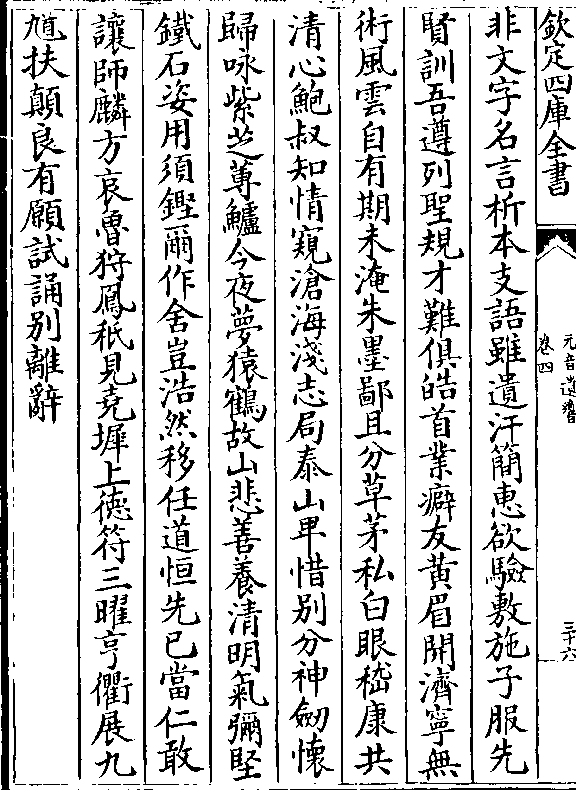 欽定四庫全書
元音遺響
卷四
三十六
非文字名言析本支語雖遺汗簡恵欲驗敷施子服先
賢訓吾遵列聖規才難俱皓首業癖友黄眉開濟寧無
術風雲自有期未淹朱墨鄙且分草茅私白眼嵇康共
清心鮑叔知情窺滄海淺志局泰山卑惜别分神劒懐
歸咏紫芝蓴鱸今夜夢猿鶴故山悲善養清明氣彌堅
鐵石姿用須鏗爾作舍豈浩然移任道恒先已當仁敢
讓師麟方哀魯狩鳳秖見堯墀上徳符三曜亨衢展九
馗扶顛良有願試誦别離辭